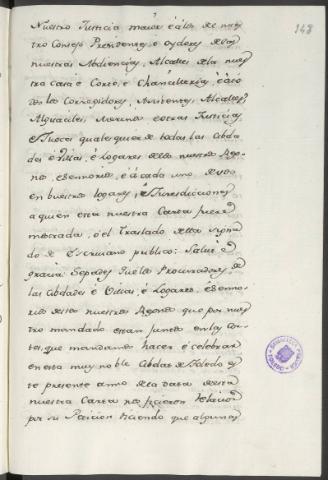 148
Nuestro Justicia maior é á los de nues
tro Consejo Presidentes, é oydores de las
nuestras Abdiencias, Alcaldes de la nues
tra Casa é Corte, é Chancillerias, é á to
dos los Corregidores, Asistentes, Alcaldes,
Alguaciles, Merinos é otras Justicias
é Jueces qualesquier de todas las Cibda
des é Villas, é Logares de los nuestros Rey
nos, é Senorios, é á cada uno de vos
en vuestros logares, é Jurisdicciones
a quien esta nuestra Carta fuere
mostrada, ó el Traslado de ella signa
do de Escrivano publico: Salud é
gracia Sepades que los Procuradores de
las Cibdades é Villas, é Logares, é Seno
rios de estos nuestros Reynos que por nues
tro mandado estan juntos en las Cor
tes, que mandamos hacer é celebrar
en esta muy noble Cibdad de Toledo es
te presente anno de la data de esta
nuestra Carta nos ficieron relacion
por su Peticion diciendo que algunos